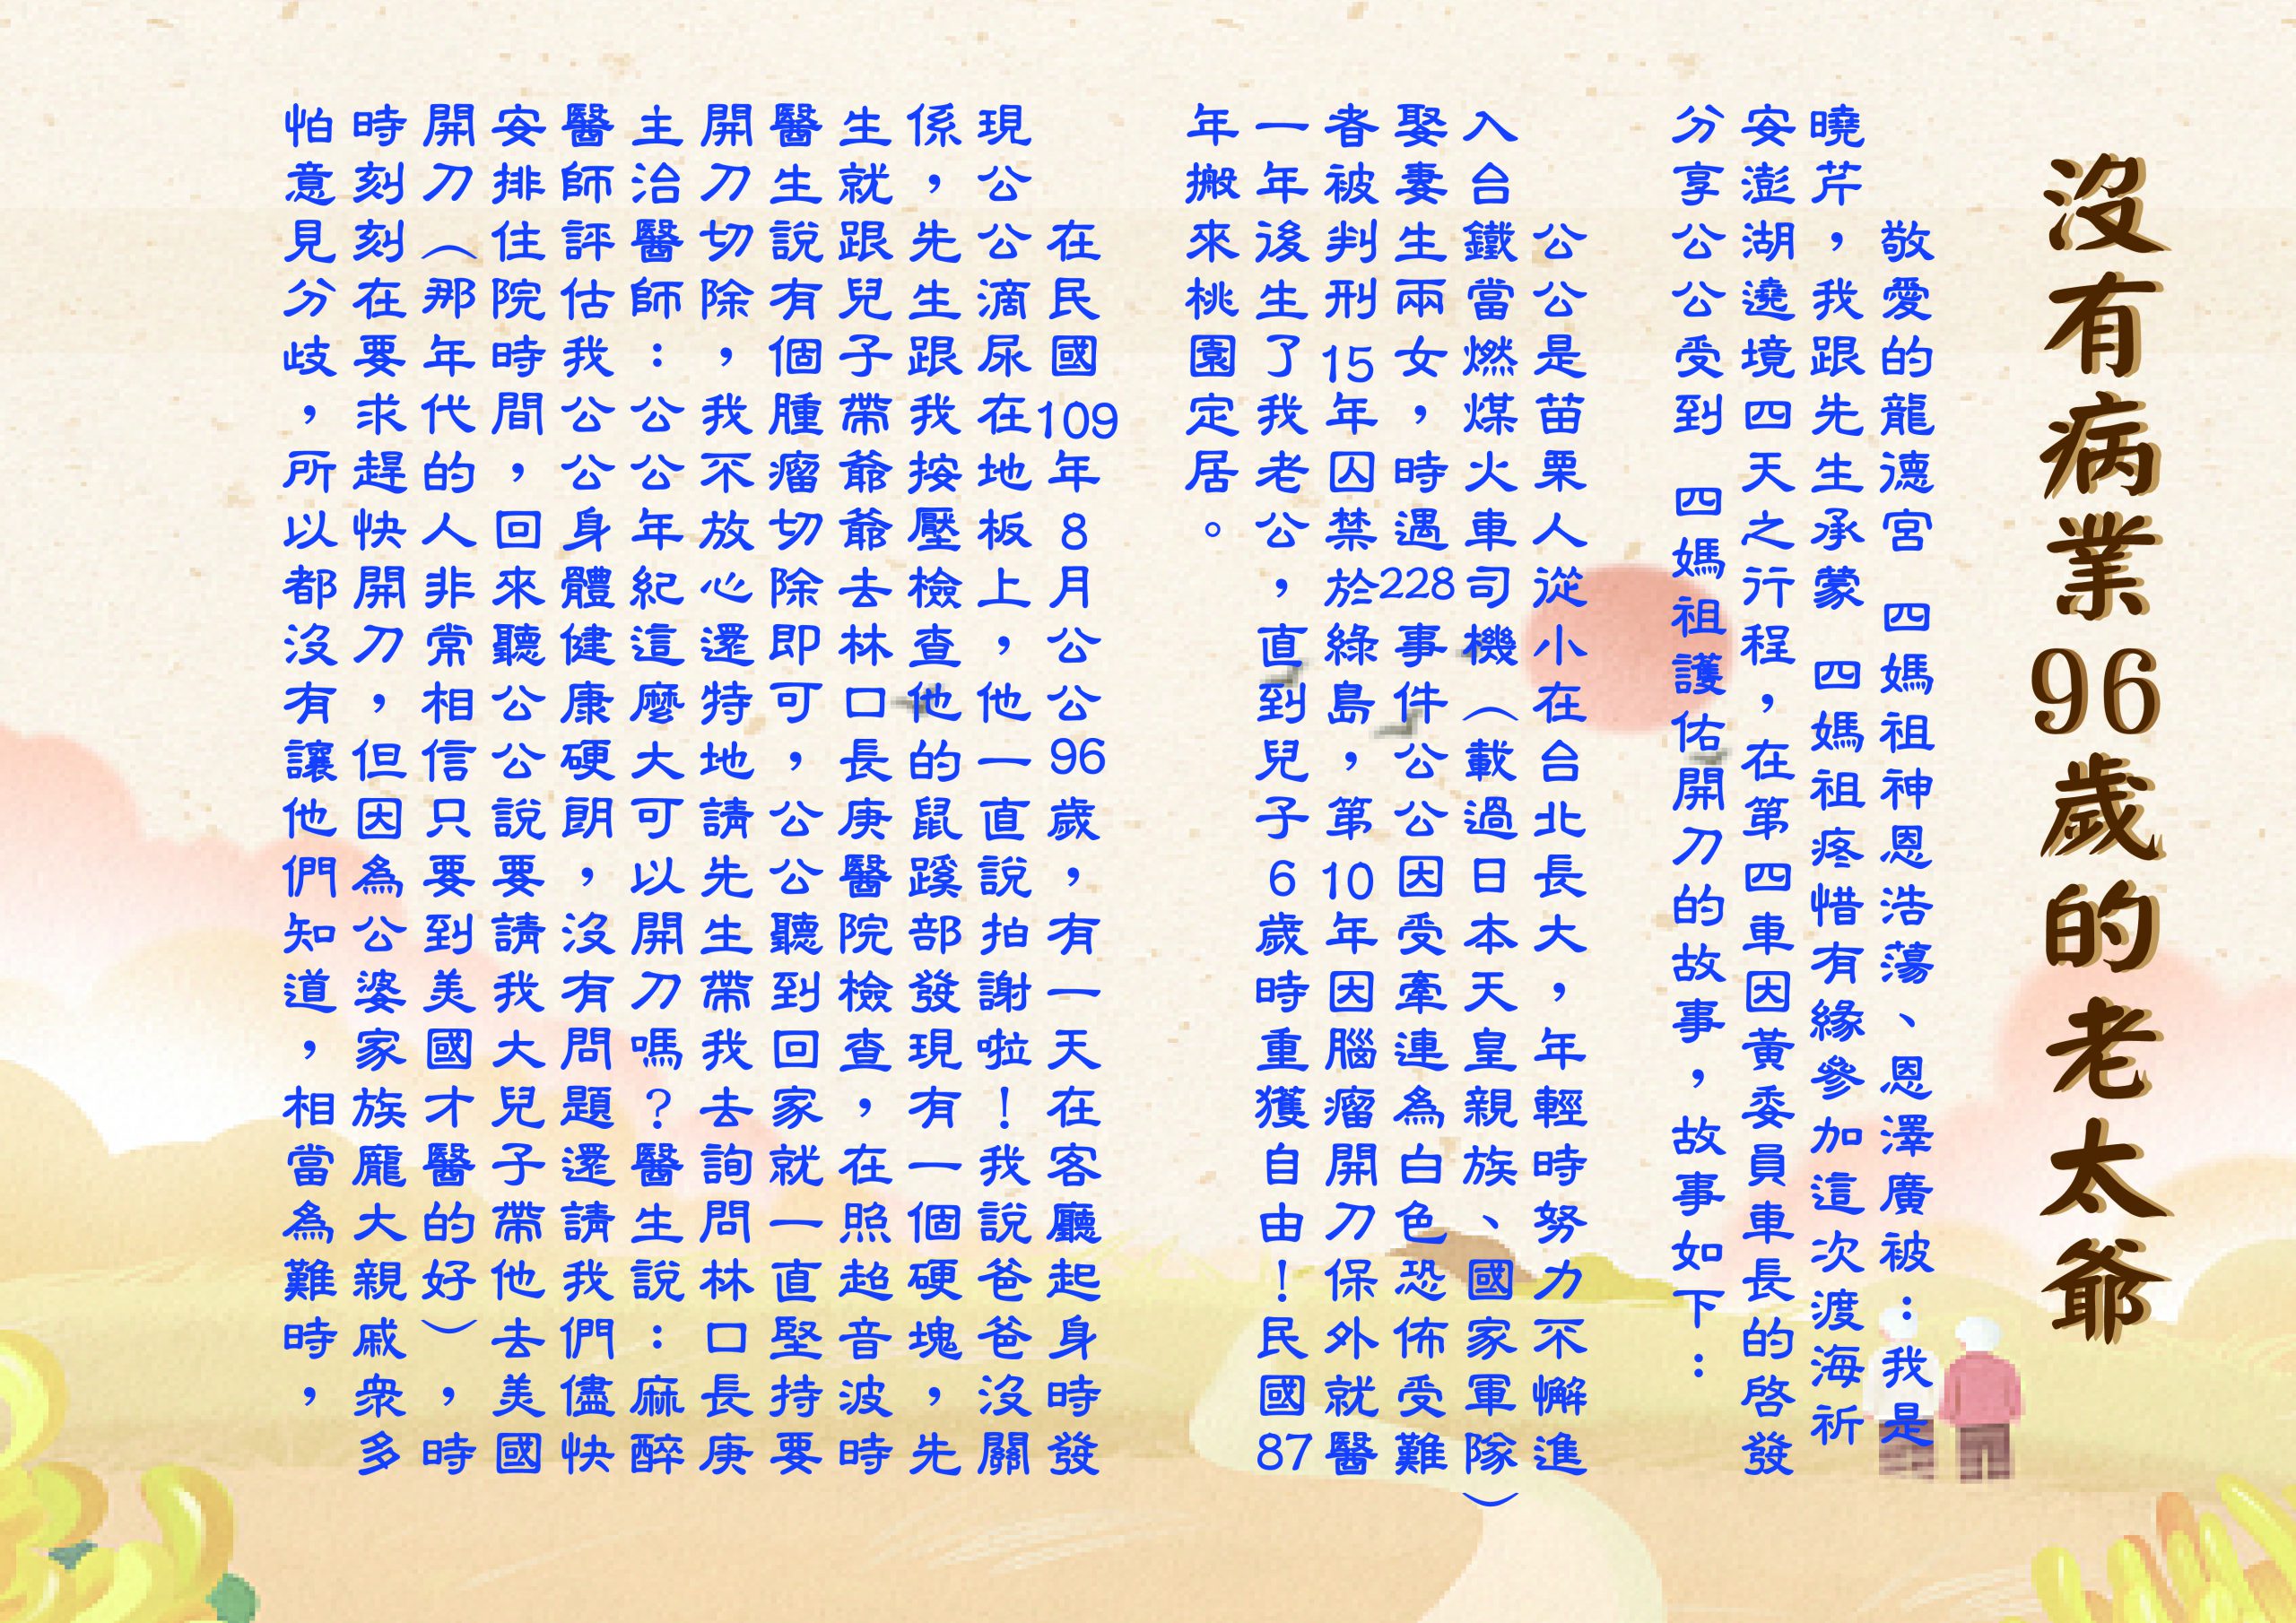 沒有病業96歲的老太爺
敬愛的龍德宮 四媽祖神恩浩蕩、恩澤廣被：我是
曉芹，我跟先生承蒙 四媽祖疼惜有緣參加這次渡海祈
安澎湖遶境四天之行程，在第四車因黃委員車長的啓發
分享公公受到 四媽祖護佑開刀的故事，故事如下：
公公是苗栗人從小在台北長大，年輕時努力不懈進
入台鐵當燃煤火車司機（載過日本天皇親族、國家軍隊）
娶妻生兩女，時遇228事件公公因受牽連為白色恐佈受難
者被判刑15年囚禁於綠島，第10年因腦瘤開刀保外就醫
一年後生了我老公，直到兒子6歲時重獲自由！民國87
年搬來桃園定居。
在民國109年8月公公96歲，有一天在客廳起身時發
現公公滴尿在地板上，他一直說拍謝啦！我說爸爸沒關
係，先生跟我按壓檢查他的鼠蹊部發現有一個硬塊，先
生就跟兒子帶爺爺去林口長庚醫院檢查，在照超音波時
醫生說有個腫瘤切除即可，公公聽到回家就一直堅持要
開刀切除，我不放心還特地請先生帶我去詢問林口長庚
主治醫師：公公年紀這麼大可以開刀嗎？醫生說：麻醉
醫師評估我公公身體健康硬朗，沒有問題還請我們儘快
安排住院時間，回來聽公公說要請我大兒子帶他去美國
開刀（那年代的人非常相信只要到美國才醫的好），時
時刻刻在要求趕快開刀，但因為公婆家族龐大親戚衆多
怕意見分歧，所以都沒有讓他們知道，相當為難時，